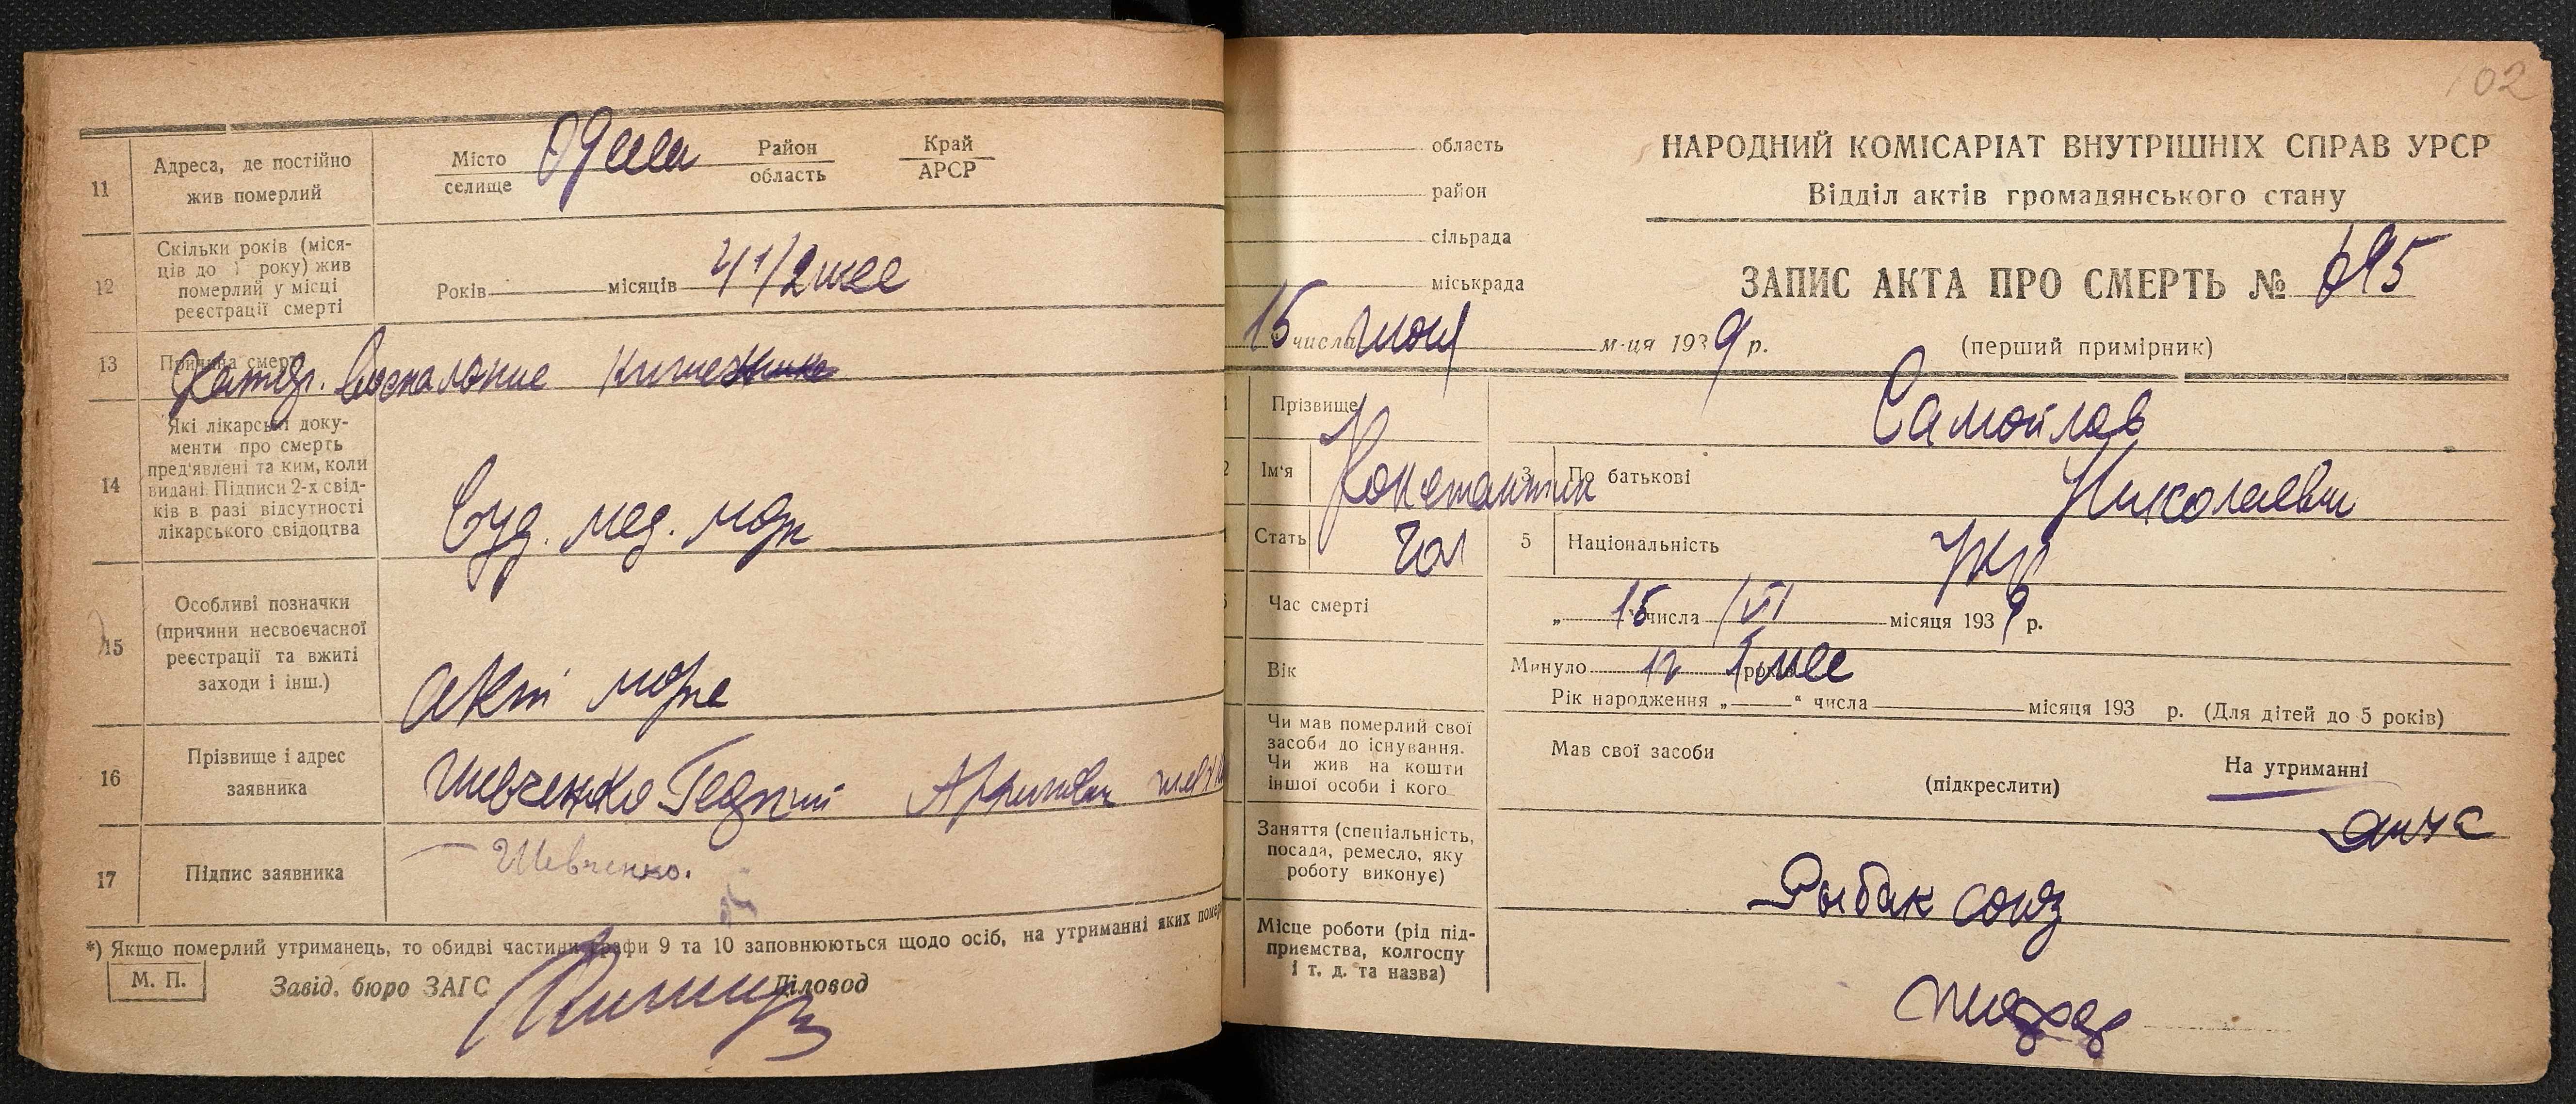 11
Адреса, де постійно
жив померлий
Місто
селище
Одесса
Район
область
Край
АРСР
12
Скільки років (міся-
ців до 1 року) жив
померлий у місці
реєстрації смерті
Років місяців 4 1/2 мес
13
Причина смерті
Катар. Воспаление кишечника
14
Які лікарські доку-
менти про смерть
пред'явлені та ким, коли
видані. Підписи 2-х свід-
ків в разі відсутності
лікарського свідоцтва
Суд. мед. морг
15
Особливі позначки
(причини несвоєчасної
реєстрації та вжиті
заходи і інш.)
акт морга
16
Прізвище і адрес
заявника
Шевченко
17
Підпис заявника
Шевченко.
*) Якщо померлий утриманець, то обидві частини графи 9 та 10 заповнюються щодо осіб, на утриманні яких
М. П.
Завід. бюро ЗАГС
Діловод
02
область
район
сільрада
міськрада
НАРОДНИЙ КОМІСАРІАТ ВНУТРІШНІХ СПРАВ УРСР
Відділ актів громадянського стану
ЗАПИС АКТА ПРО СМЕРТЬ № 695
15 числа июня м-ця 1939 р.
(перший примірник)
Прізвище
Самойлов
2
Ім'я
Константин
3
По батькові
Николаевич
Стать
чол
5
Національність
укр
Час смерті
„ 15 числа VI місяця 1939 р.
Вік
Минуло 1 мес
років
Рік народження „ “ числа місяця 193 р. (Для дітей до 5 років)
Чи мав померлий свої
засоби до існування.
Чи жив на кошти
іншої особи і кого
Мав свої засоби
(підкреслити)
На утриманні
отца
Заняття (спеціальність,
посада, ремесло, яку
роботу виконує)
Рыбак союз
Місце роботи (рід під-
приємства, колгоспу
і т. д. та назва)